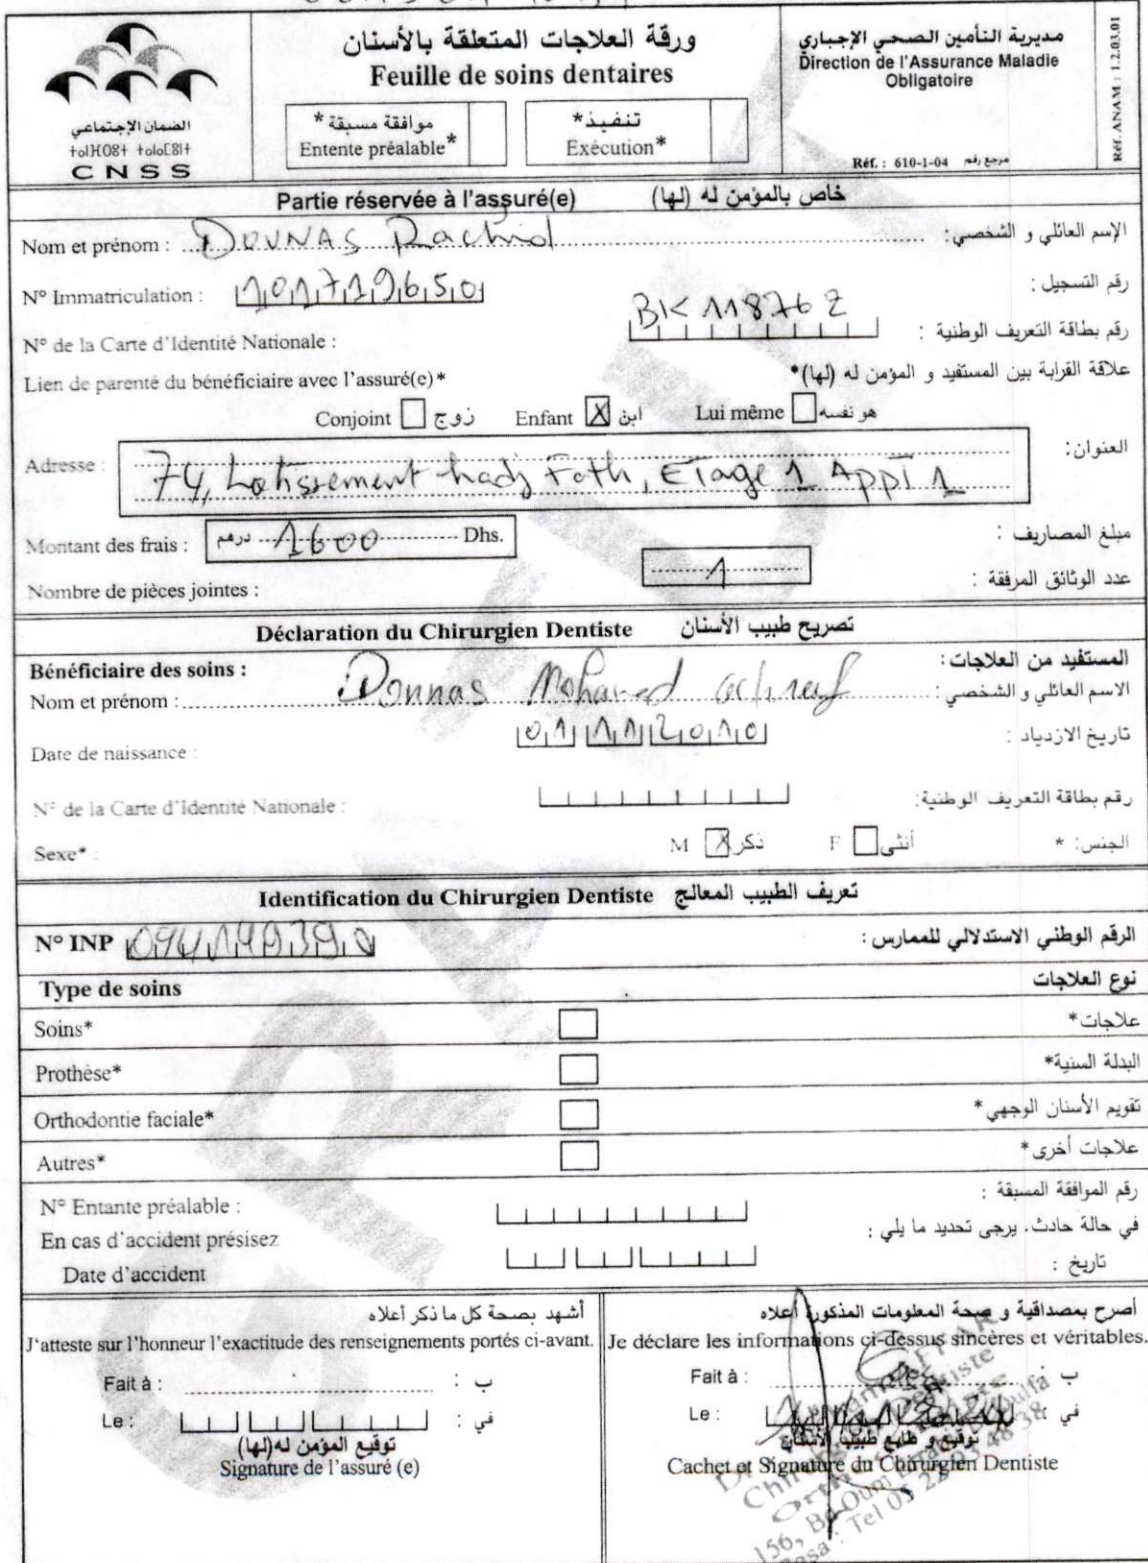 ورقة العلاجات المتعلقة بالأسنان
Feuille de soins dentaires
الضمان الإجتماعي
ⵜⴰⵏⴼⵓⵙⵜ ⵜⴰⵏⴰⵎⵓⵏⵜ
CNSS
موافقة مسبقة *
Entente préalable*
تنفيذ*
Exécution*
مديرية التأمين الصحي الإجباري
Direction de l'Assurance Maladie
Obligatoire
Réf. : 610-1-04 مرجع رقم
Réf. ANAM : 1.2.03.01
Partie réservée à l'assuré(e) خاص بالمؤمن له (لها)
Nom et prénom : DOUNAS Rachid الإسم العائلي و الشخصي:
N° Immatriculation : 101719650 رقم التسجيل :
N° de la Carte d'Identité Nationale : BK 118762 رقم بطاقة التعريف الوطنية :
Lien de parenté du bénéficiaire avec l'assuré(e)* علاقة القرابة بين المستفيد و المؤمن له (لها)*
Conjoint زوج Enfant X ابن Lui même هو نفسه
Adresse : 74, Lotissement hadj Fath, Etage 1 Appt 1 العنوان:
Montant des frais : درهم 1600 Dhs. مبلغ المصاريف :
Nombre de pièces jointes : 1 عدد الوثائق المرفقة :
Déclaration du Chirurgien Dentiste تصريح طبيب الأسنان
Bénéficiaire des soins : المستفيد من العلاجات:
Nom et prénom : Dounas Mohamed الاسم العائلي و الشخصي :
Date de naissance : 01 11 2010 تاريخ الازدياد :
N° de la Carte d'Identité Nationale : رقم بطاقة التعريف الوطنية:
Sexe* : M X ذكر F أنثى الجنس: *
Identification du Chirurgien Dentiste تعريف الطبيب المعالج
N° INP الرقم الوطني الاستدلالي للممارس :
Type de soins نوع العلاجات
Soins* علاجات*
Prothèse* البدلة السنية*
Orthodontie faciale* تقويم الأسنان الوجهي*
Autres* علاجات أخرى*
N° Entante préalable : رقم الموافقة المسبقة :
En cas d'accident présisez في حالة حادث، يرجى تحديد ما يلي :
Date d'accident تاريخ :
أشهد بصحة كل ما ذكر أعلاه
J'atteste sur l'honneur l'exactitude des renseignements portés ci-avant.
Fait à : ب :
Le : في :
توقيع المؤمن له(لها)
Signature de l'assuré (e)
أصرح بمصداقية و صحة المعلومات المذكورة أعلاه
Je déclare les informations ci-dessus sincères et véritables.
Fait à : ب :
Le : في :
توقيع و طابع طبيب الأسنان
Cachet et Signature du Chirurgien Dentiste